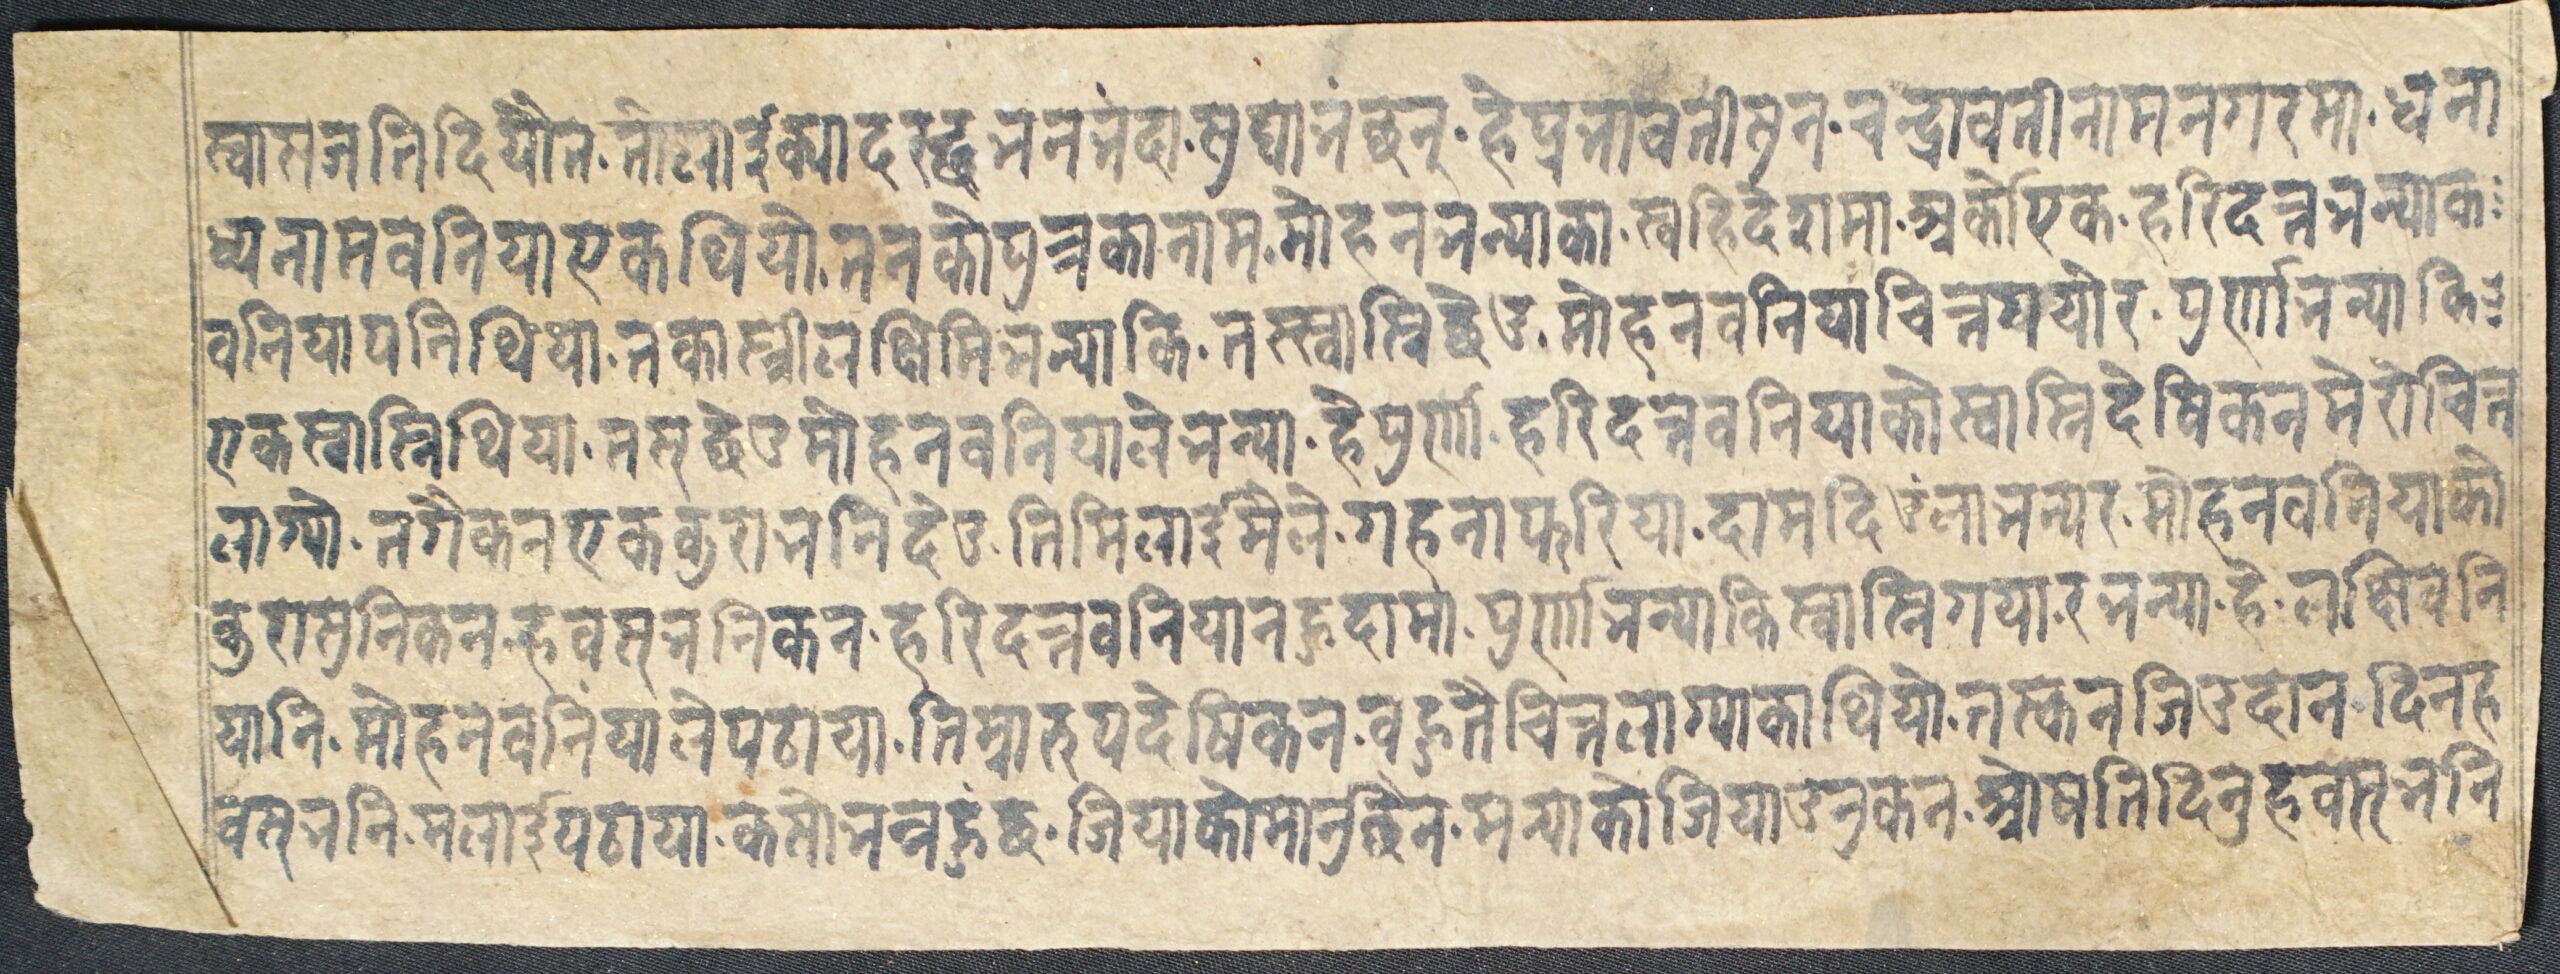 स्वासजतिदियौन. तोलाइंक्यादरुद्ध भनभंदा. सुघाभंछुन्. हेप्रभावतीसुन. चन्द्रावतीनामनगरमा. धना
ध्यनामवनियाएकथियो. तनकोपुत्रकानाम. मोहनभन्याका. स्वहिदेशमा. अर्कोएक. हरिदत्तभन्याक
वनियापनिथिया. तकास्त्रीलक्षिमिभन्याकि. तस्स्वास्निछेउ. मोहनवनियाचित्तगयोर. पुर्णाभन्याकि
एकस्वास्निथिया. तस्छेउमोहनवनियालेभन्या. हेपुर्णा. हरिदत्तवनियाकोस्वास्निदेषिकनमेरोचित्त
लाग्यो. तगैकनएककुराभनिदेउ. तिमिलाइमैले. गहनाफरिया. दामदिउंलाभन्यर. मोहनवनियाको
कुरासुनिकन. हवस्भनिकन. हरिदत्तवनियानहुदामा. पुर्णाभन्याकिस्वास्निगयार. भन्या. हे. लक्षिवनि
यानि. मोहनवनियालेपठाया. तिम्रारुपदेषिकन. वहुतैचित्तलाग्याकाथियो. तस्कनजिउदान. दिनह
वस्भनि. मलाईपठाया. कसोभन्नहुंछ. जियाकोमानुछैन. मन्याकोजियाउनुकन. औषतिदिनुहवस्भनि